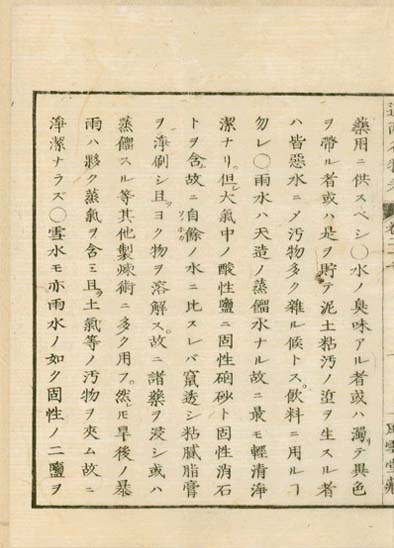 藥用ニ供スベシ〇水ノ臭味アル者或ハ濁リテ異色
ヲ帶ル者或ハ是ヲ貯テ泥土粘汚ノ渣ヲ生スル者
ハ皆惡水ニメ汚物多ク雜ル候トス。飲料ニ用ルヿ
勿レ〇雨水ハ天造ノ蒸餾水ナル故ニ最モ輕清淨
潔ナリ。但シ大氣中ノ酸性鹽ニ固性硇砂ト固性消石
トヲ含。故ニ自餘ノ水ニ比スレバ竄透シ粘膩脂膏
ヲ淨刷シ且ツヨク物ヲ溶解ス。故ニ諸藥ヲ浸シ或ハ
蒸餾スル等其他製煉術ニ多ク用フ。然𪜈旱後ノ暴
雨ハ夥ク蒸氣ヲ含ミ且ツ土氣等ノ汚物ヲ夾ム故ニ
淨潔ナラズ〇雪水モ亦雨水ノ如ク固性ノ二鹽ヲ